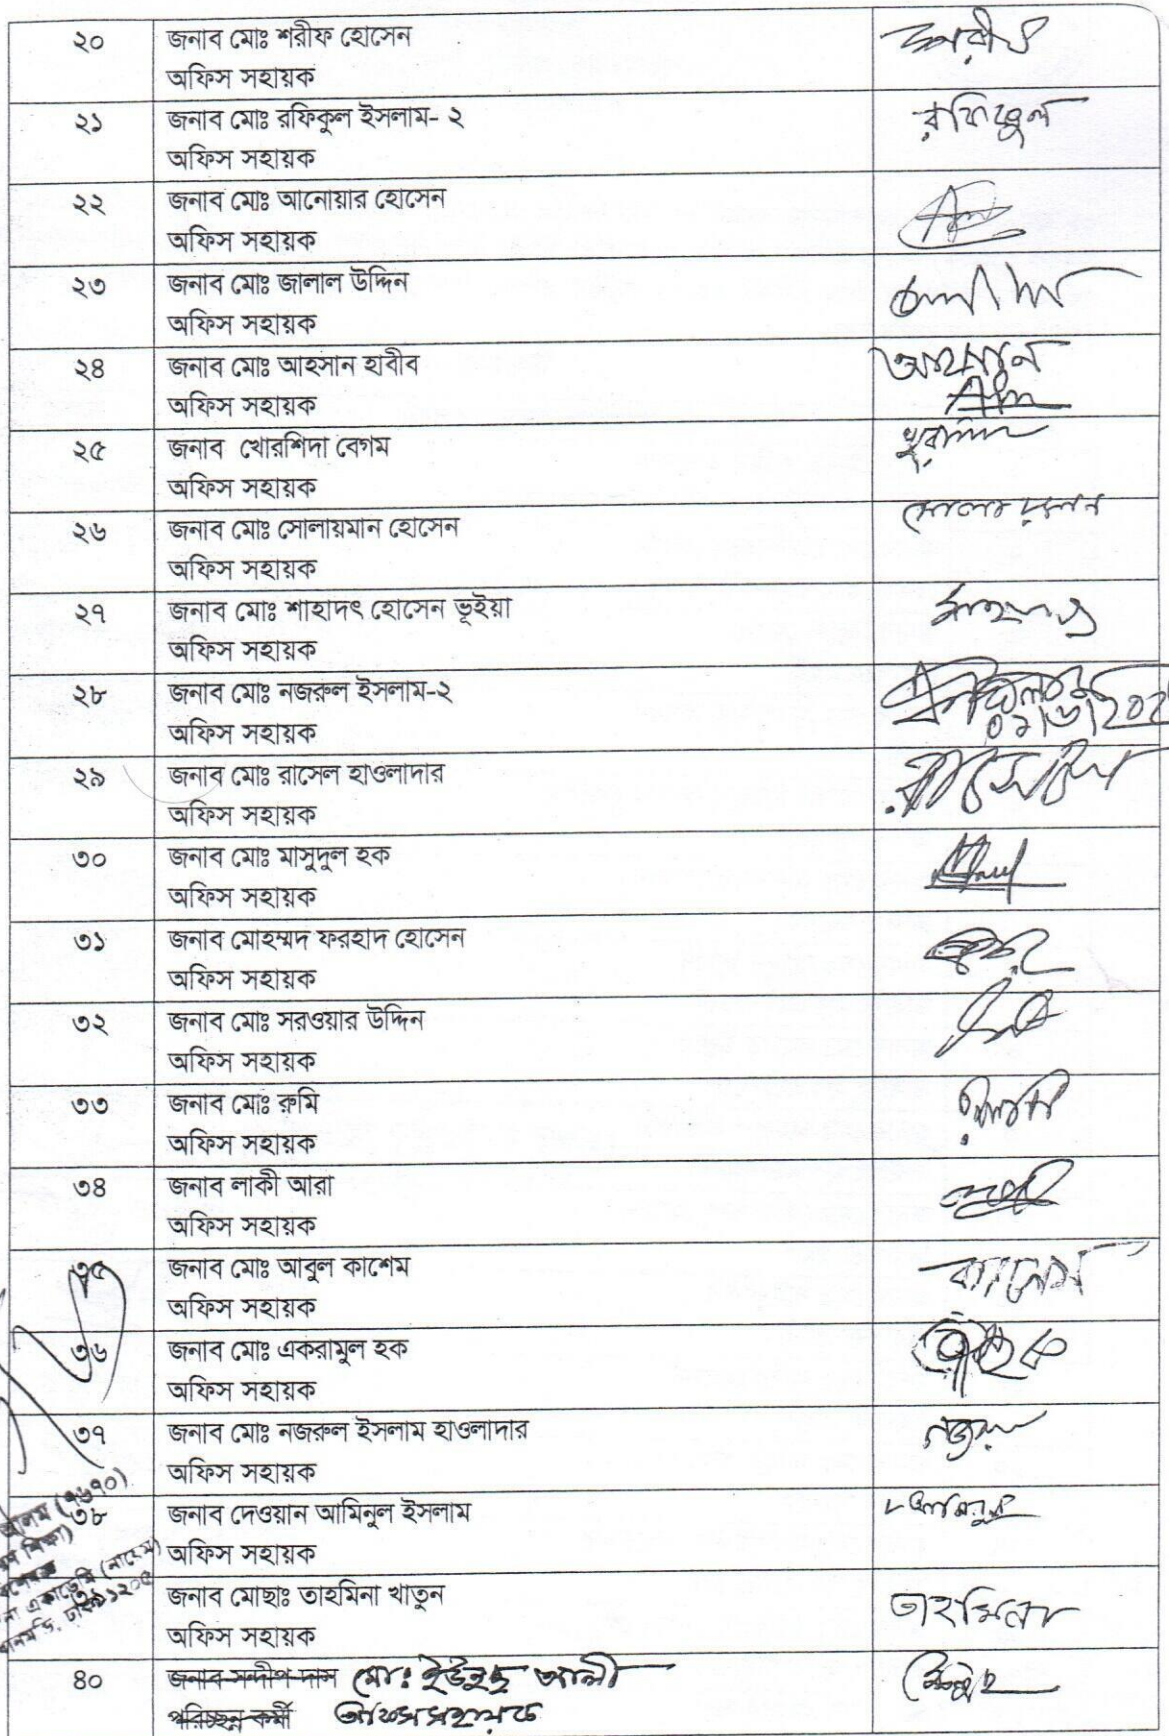 ২০ জনাব মোঃ শরীফ হোসেন শরীফ
অফিস সহায়ক
২১ জনাব মোঃ রফিকুল ইসলাম- ২ রফিকুল
অফিস সহায়ক
২২ জনাব মোঃ আনোয়ার হোসেন
অফিস সহায়ক
২৩ জনাব মোঃ জালাল উদ্দিন
অফিস সহায়ক
২৪ জনাব মোঃ আহসান হাবীব আহসান
অফিস সহায়ক
২৫ জনাব খোরশিদা বেগম
অফিস সহায়ক
২৬ জনাব মোঃ সোলায়মান হোসেন
অফিস সহায়ক
২৭ জনাব মোঃ শাহাদৎ হোসেন ভূইয়া
অফিস সহায়ক
২৮ জনাব মোঃ নজরুল ইসলাম-২
অফিস সহায়ক
২৯ জনাব মোঃ রাসেল হাওলাদার
অফিস সহায়ক
৩০ জনাব মোঃ মাসুদুল হক
অফিস সহায়ক
৩১ জনাব মোহম্মদ ফরহাদ হোসেন
অফিস সহায়ক
৩২ জনাব মোঃ সরওয়ার উদ্দিন
অফিস সহায়ক
৩৩ জনাব মোঃ রুমি
অফিস সহায়ক
৩৪ জনাব লাকী আরা
অফিস সহায়ক
৩৫ জনাব মোঃ আবুল কাশেম কাশেম
অফিস সহায়ক
৩৬ জনাব মোঃ একরামুল হক
অফিস সহায়ক
৩৭ জনাব মোঃ নজরুল ইসলাম হাওলাদার
অফিস সহায়ক
৩৮ জনাব দেওয়ান আমিনুল ইসলাম
অফিস সহায়ক
৩৯ জনাব মোছাঃ তাহমিনা খাতুন তাহমিনা
অফিস সহায়ক
৪০ জনাব সন্দীপ দাস মোঃ ইউনুছ আলী
পরিচ্ছন্ন কর্মী অফিস সহায়ক